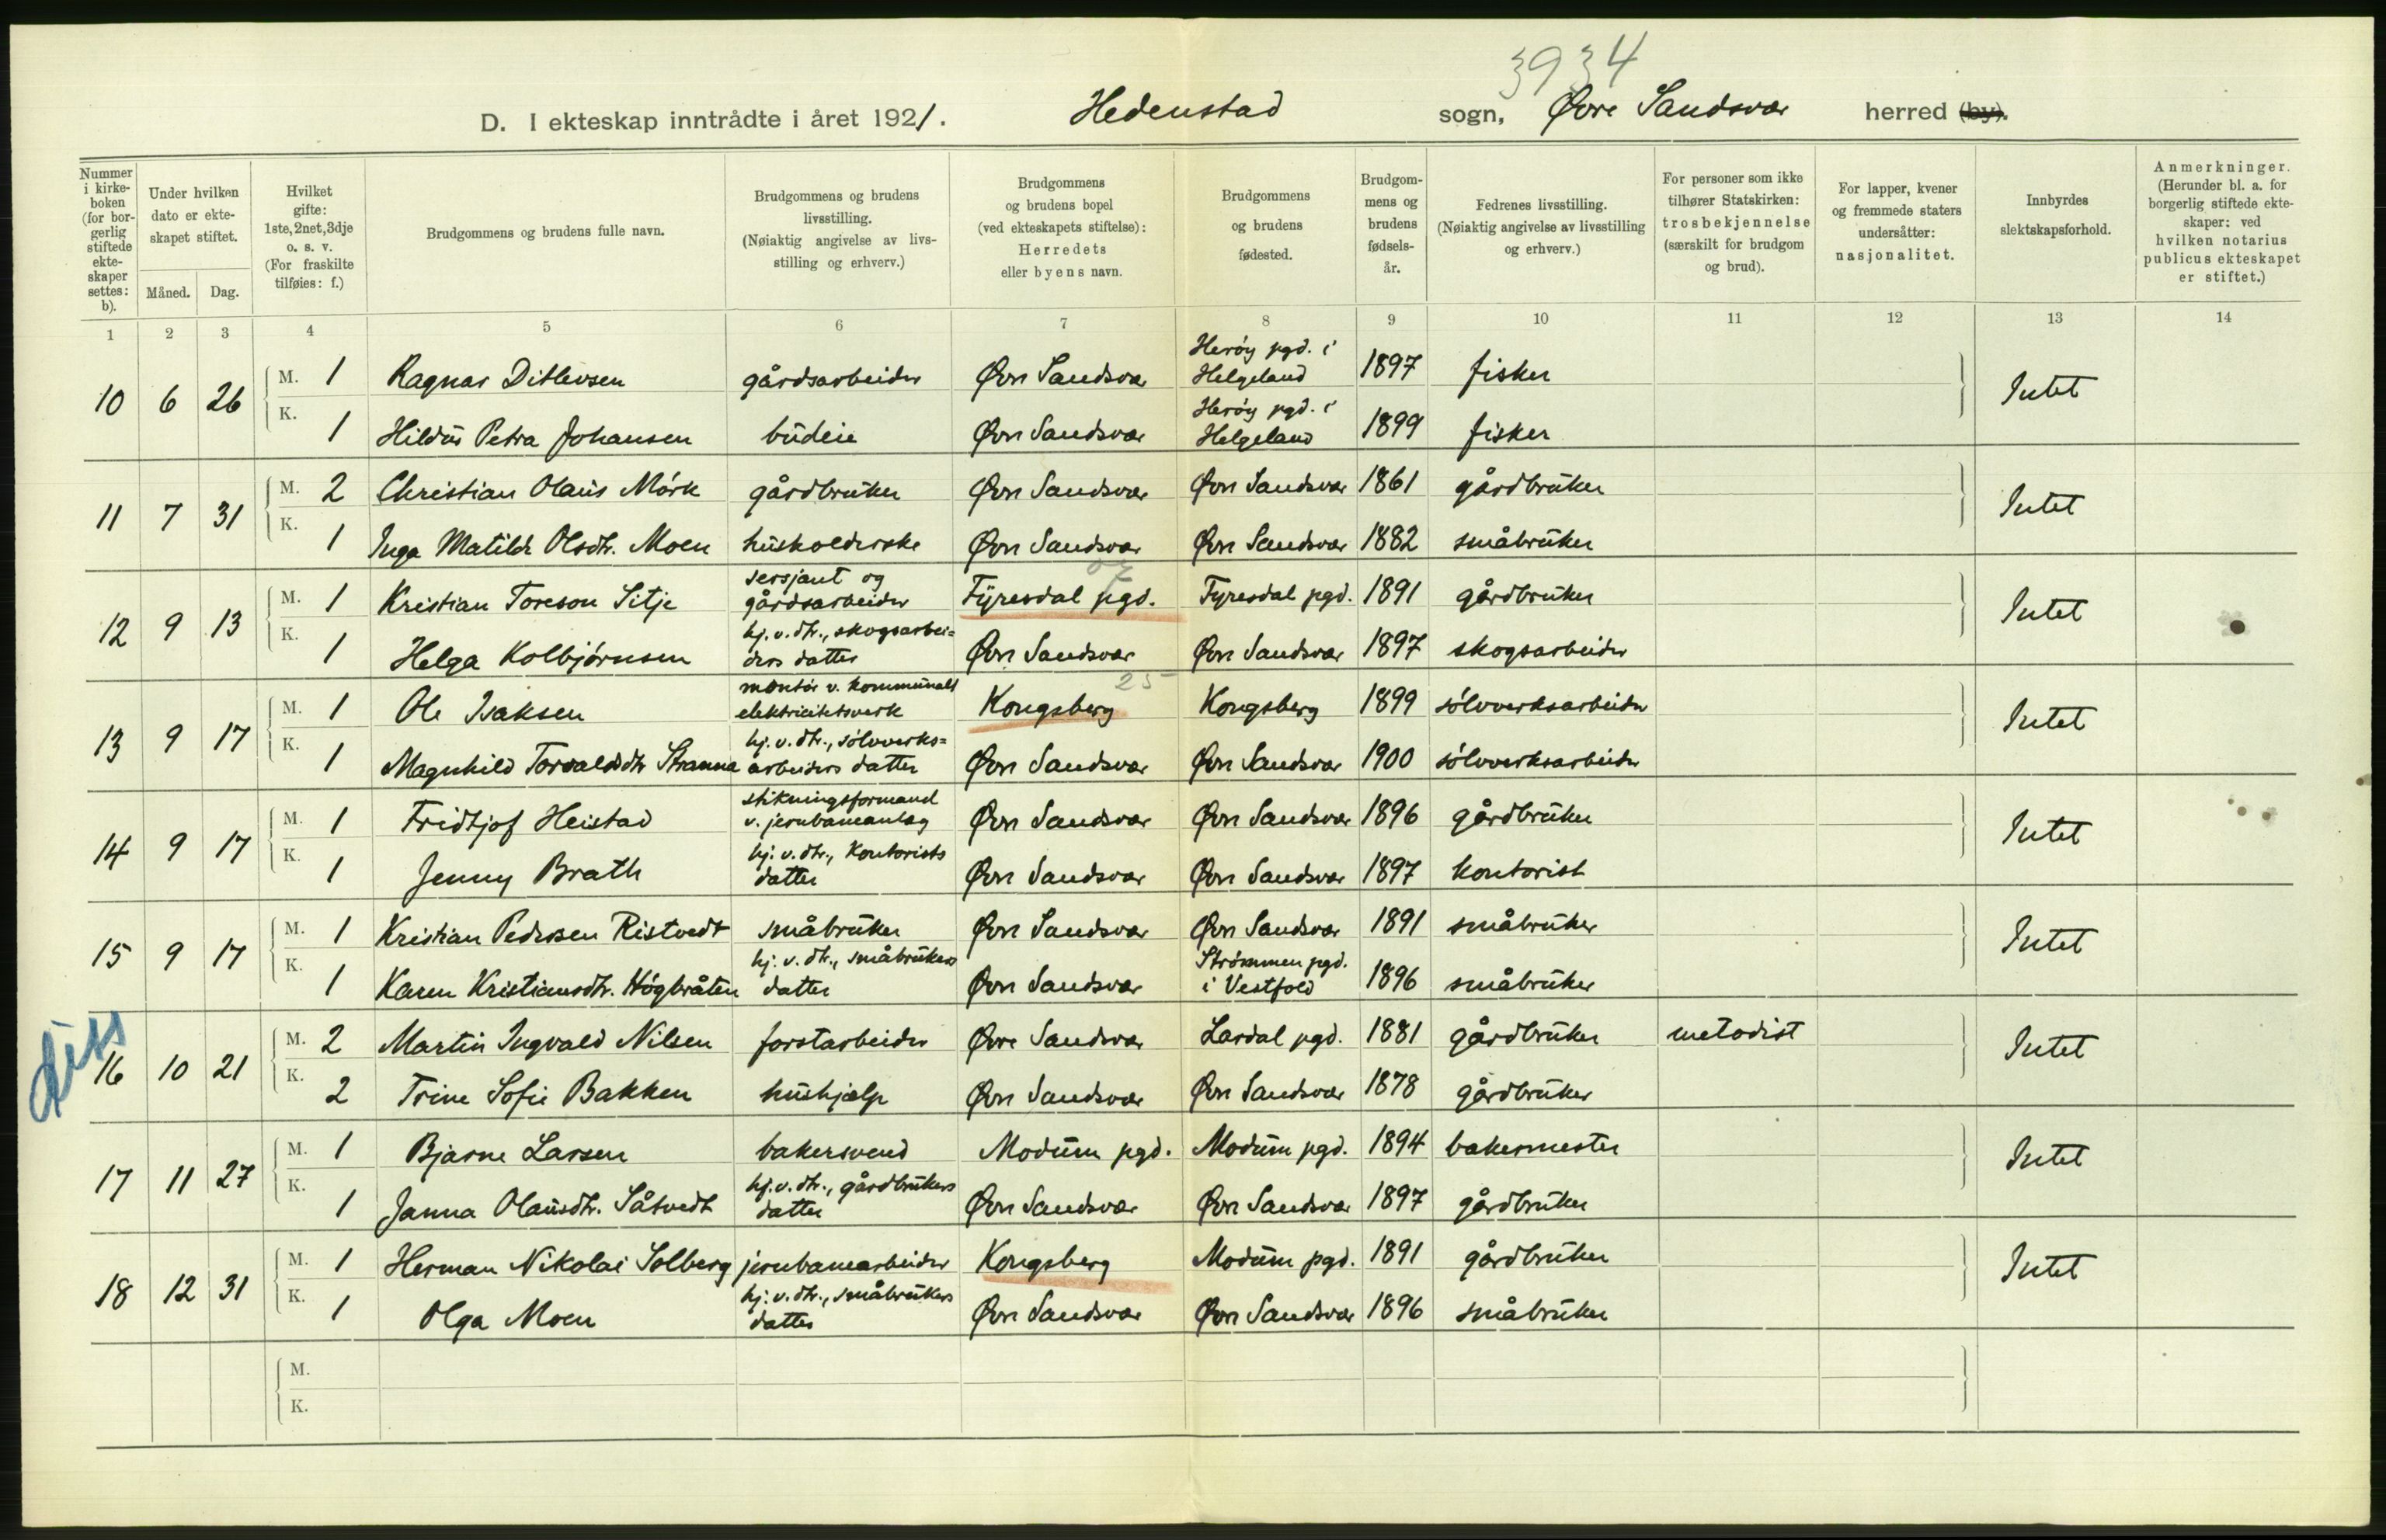 3934
D. I ekteskap inntrådte i året 1921. Hedenstad sogn, Øvre Sandsvær herred (by).
Nummer i kirke-boken (for bor-gerlig stiftede ekte-skaper settes: b).
Under hvilken dato er ekte-skapet stiftet.
Måned. Dag.
Hvilket gifte: 1ste, 2net, 3dje o. s. v. (For fraskilte tilføies: f.)
Brudgommens og brudens fulle navn.
Brudgommens og brudens livsstilling. (Nøiaktig angivelse av livs-stilling og erhverv.)
Brudgommens og brudens bopel (ved ekteskapets stiftelse): Herredets eller byens navn.
Brudgommens og brudens fødested.
Brudgom-mens og brudens fødsels-år.
Fedrenes livsstilling. (Nøiaktig angivelse av livsstilling og erhverv.)
For personer som ikke tilhører Statskirken: trosbekjennelse (særskilt for brudgom og brud).
For lapper, kvener og fremmede staters undersåtter: nasjonalitet.
Innbyrdes slektskapsforhold.
Anmerkninger. (Herunder bl. a. for borgerlig stiftede ekte-skaper: ved hvilken notarius publicus ekteskapet er stiftet.)
1 2 3 4 5 6 7 8 9 10 11 12 13 14
10 6 26 M. 1 Ragnar Ditlevsen gårdsarbeider Øvre Sandsvær Herøy pgd. i Helgeland 1897 fisker Intet
K. 1 Hildus Petra Johansen budeie Øvre Sandsvær Herøy pgd. i Helgeland 1899 fisker
11 7 31 M. 2 Christian Olaus Mørk gårdbruker Øvre Sandsvær Øvre Sandsvær 1861 gårdbruker Intet
K. 1 Inga Matilde Olsdtr. Moen husholderske Øvre Sandsvær Øvre Sandsvær 1882 småbruker
12 9 13 M. 1 Kristian Toreson Sitje sersjant og gårdsarbeider Fyresdal pgd. Fyresdal pgd. 1891 gårdbruker Intet
K. 1 Helga Kolbjørnsen hj. v. dtr., skogsarbei-ders datter Øvre Sandsvær Øvre Sandsvær 1897 skogsarbeider
25
13 9 17 M. 1 Ole Isaksen montør v. kommunalt elektricitetsverk Kongsberg Kongsberg 1899 sølvverksarbeider Intet
K. 1 Magnhild Torvaldsdtr Stranna hj. v. dtr., sølvverks-arbeiders datter Øvre Sandsvær Øvre Sandsvær 1900 sølvverksarbeider
14 9 17 M. 1 Fridtjof Heistad stikningsformand v. jernbaneanlæg Øvre Sandsvær Øvre Sandsvær 1896 gårdbruker Intet
K. 1 Jenny Brath hj. v. dtr., kontorists datter Øvre Sandsvær Øvre Sandsvær 1897 kontorist
15 9 17 M. 1 Kristian Pedersen Ristvedt småbruker Øvre Sandsvær Øvre Sandsvær 1891 småbruker Intet
K. 1 Karen Kristiansdtr. Høgbråten hj. v. dtr., småbrukers datter Øvre Sandsvær Strømmen pgd. i Vestfold 1896 småbruker
Diss
16 10 21 M. 2 Martin Ingvald Nilsen forstarbeider Øvre Sandsvær Lardal pgd. 1881 gårdbruker metodist Intet
K. 2 Trine Sofie Bakken hushjælp Øvre Sandsvær Øvre Sandsvær 1878 gårdbruker
17 11 27 M. 1 Bjarne Larsen bakersvend Modum pgd. Modum pgd. 1894 bakermester Intet
K. 1 Janna Olausdtr. Såtvedt hj. v. dtr., gårdbrukers datter Øvre Sandsvær Øvre Sandsvær 1897 gårdbruker
18 12 31 M. 1 Herman Nikolai Solberg jernbanearbeider Kongsberg Modum pgd. 1891 gårdbruker Intet
K. 1 Olga Moen hj. v. dtr., småbrukers datter Øvre Sandsvær Øvre Sandsvær 1896 småbruker
M.
K.